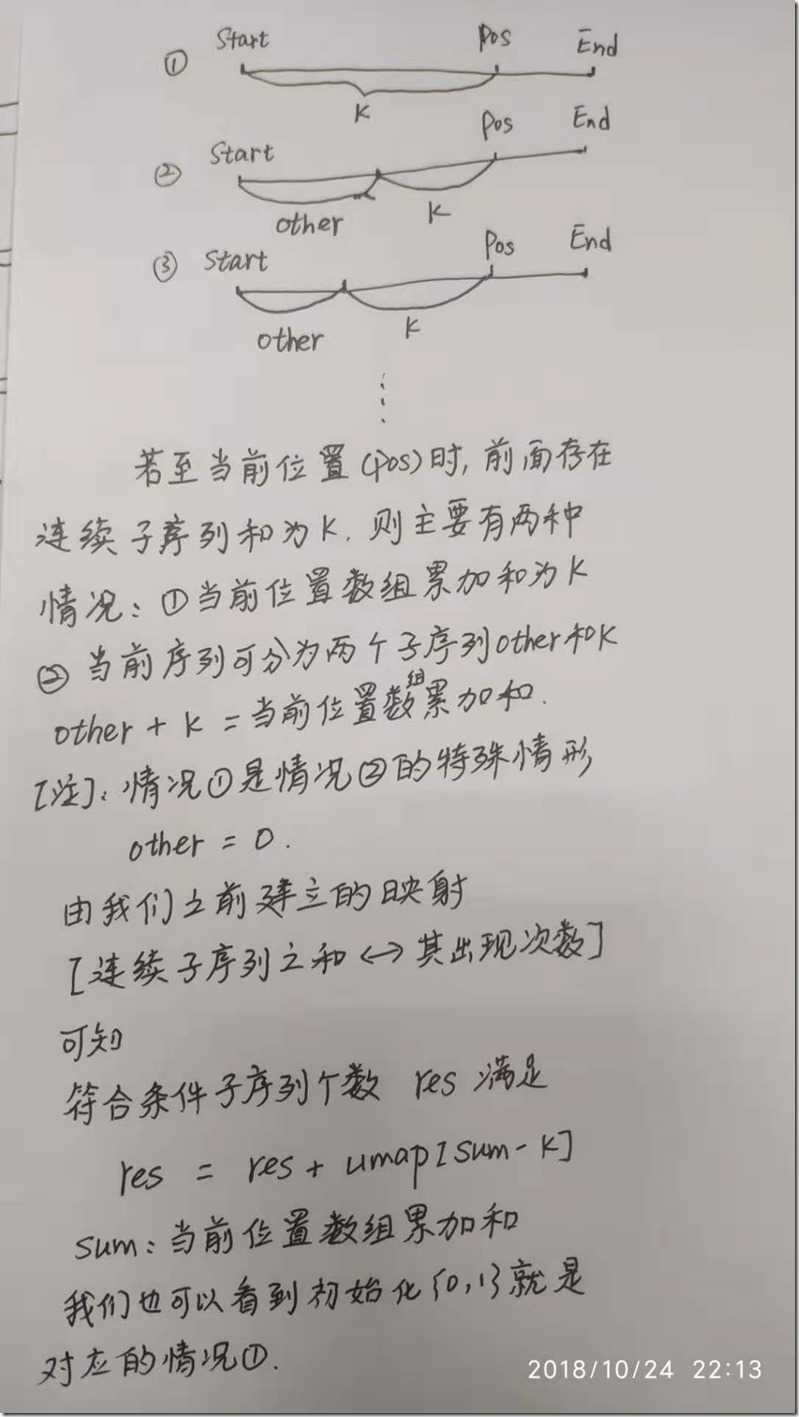 ① Start Pos End
K
② Start Pos End
other K
③ Start Pos End
other K
若至当前位置(pos)时,前面存在
连续子序列和为K.则主要有两种
情况:①当前位置数组累加和为K
②当前序列可分为两个子序列other和K
other + K = 当前位置数组累加和.
[注]:情况①是情况②的特殊情形
other = 0.
由我们之前建立的映射
[连续子序列之和 <-> 其出现次数]
可知
符合条件子序列个数 res 满足
res = res + umap[sum-K]
sum:当前位置数组累加和
我们也可以看到初始化{0,1}就是
对应的情况①.
2018/10/24 22:13